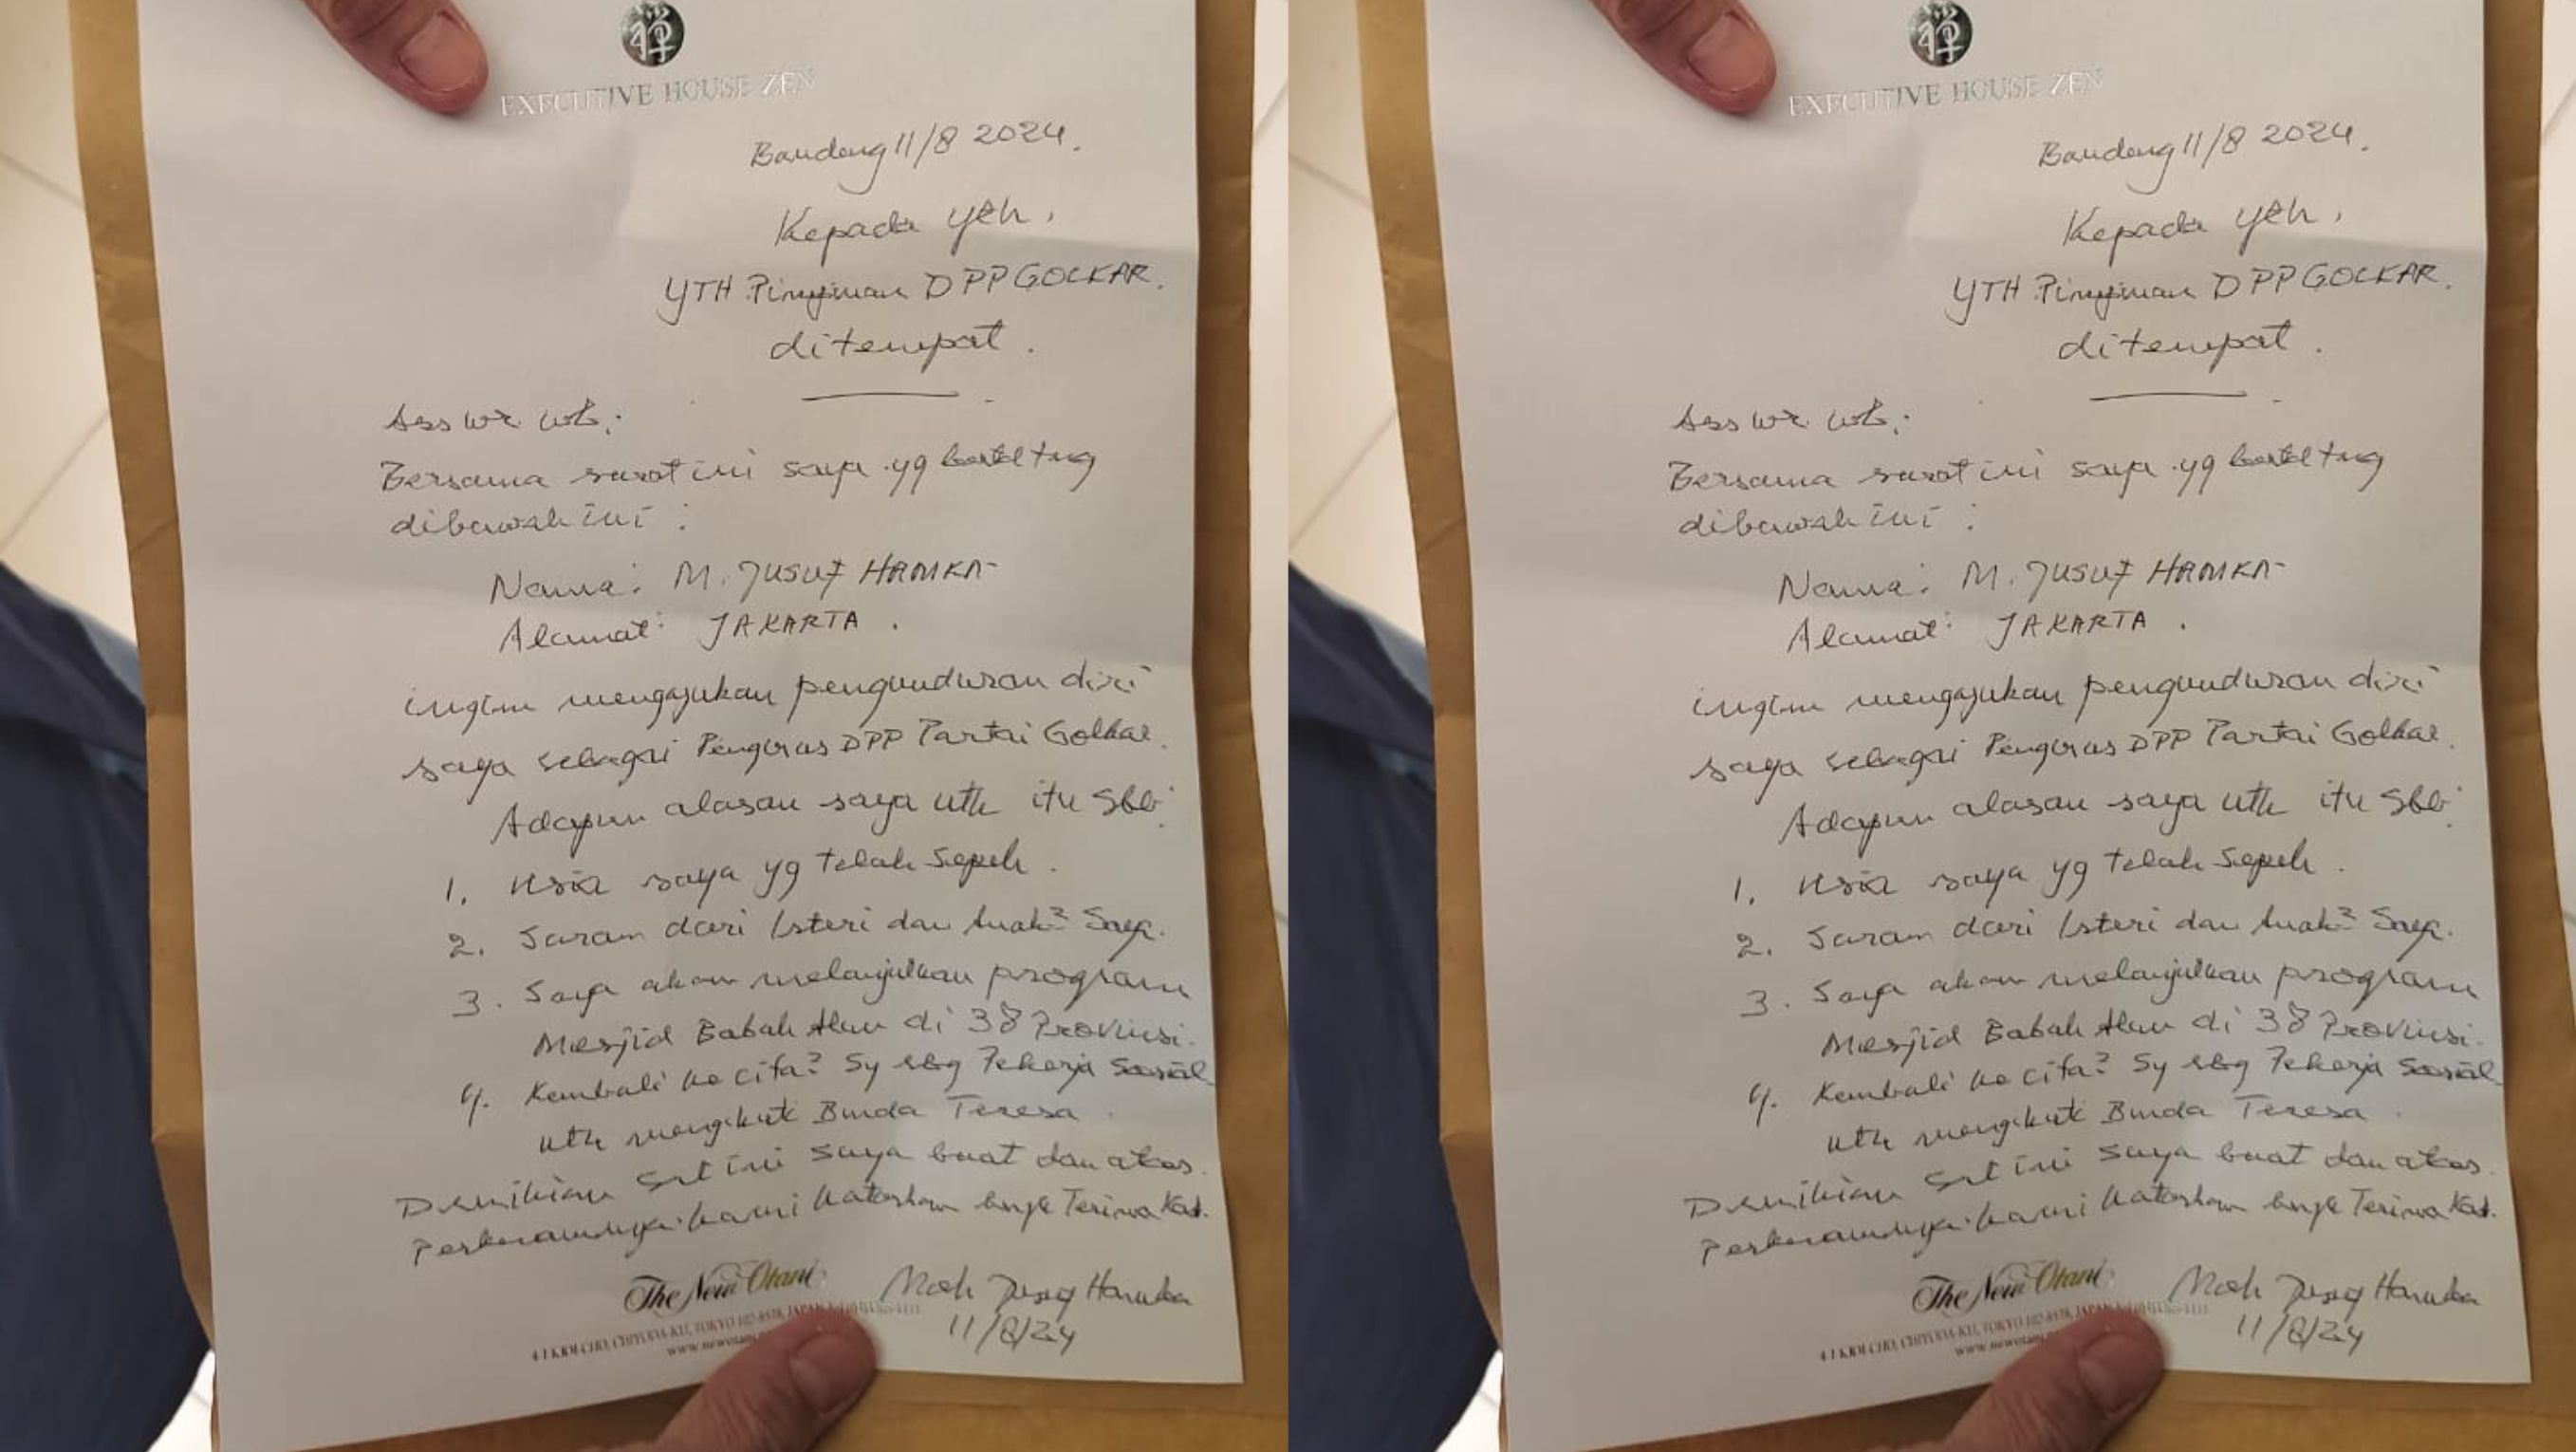 禅
EXECUTIVE HOUSE ZEN
Bandung 11/8 2024.
Kepada yth,
YTH Pimpinan DPP GOLKAR.
ditempat.
Ass wr. wb.
Bersama surat ini saya yg
dibawah ini :
Nama: M. JUSUF HAMKA
Alamat: JAKARTA.
ingin mengajukan pengunduran diri
saya sebagai Pengurus DPP Partai Golkar.
Adapun alasan saya utk itu sbb:
1. Usia saya yg telah sepuh.
2. Saran dari Isteri dan Anak2 Saya.
3. Saya akan melanjutkan program
Mesjid Babah Alun di 38 Provinsi.
4. Kembali ke cita2 Sy sbg Pekerja Sosial
utk mengikuti Bunda Teresa.
Demikian Srt ini saya buat dan atas.
perkenannya kami haturkan Terima Kas.
The New Otani
4-1 KIOI-CHO, CHIYODA-KU, TOKYO 102-8578, JAPAN
Moh Jusuf Hamka
11/8/24
禅
EXECUTIVE HOUSE ZEN
Bandung 11/8 2024.
Kepada yth,
YTH Pimpinan DPP GOLKAR.
ditempat.
Ass wr. wb.
Bersama surat ini saya yg
dibawah ini :
Nama: M. JUSUF HAMKA
Alamat: JAKARTA.
ingin mengajukan pengunduran diri
saya sebagai Pengurus DPP Partai Golkar.
Adapun alasan saya utk itu sbb:
1. Usia saya yg telah sepuh.
2. Saran dari Isteri dan Anak2 Saya.
3. Saya akan melanjutkan program
Mesjid Babah Alun di 38 Provinsi.
4. Kembali ke cita2 Sy sbg Pekerja Sosial
utk mengikuti Bunda Teresa.
Demikian Srt ini saya buat dan atas.
perkenannya kami haturkan Terima Kas.
The New Otani
4-1 KIOI-CHO, CHIYODA-KU, TOKYO 102-8578, JAPAN
Moh Jusuf Hamka
11/8/24